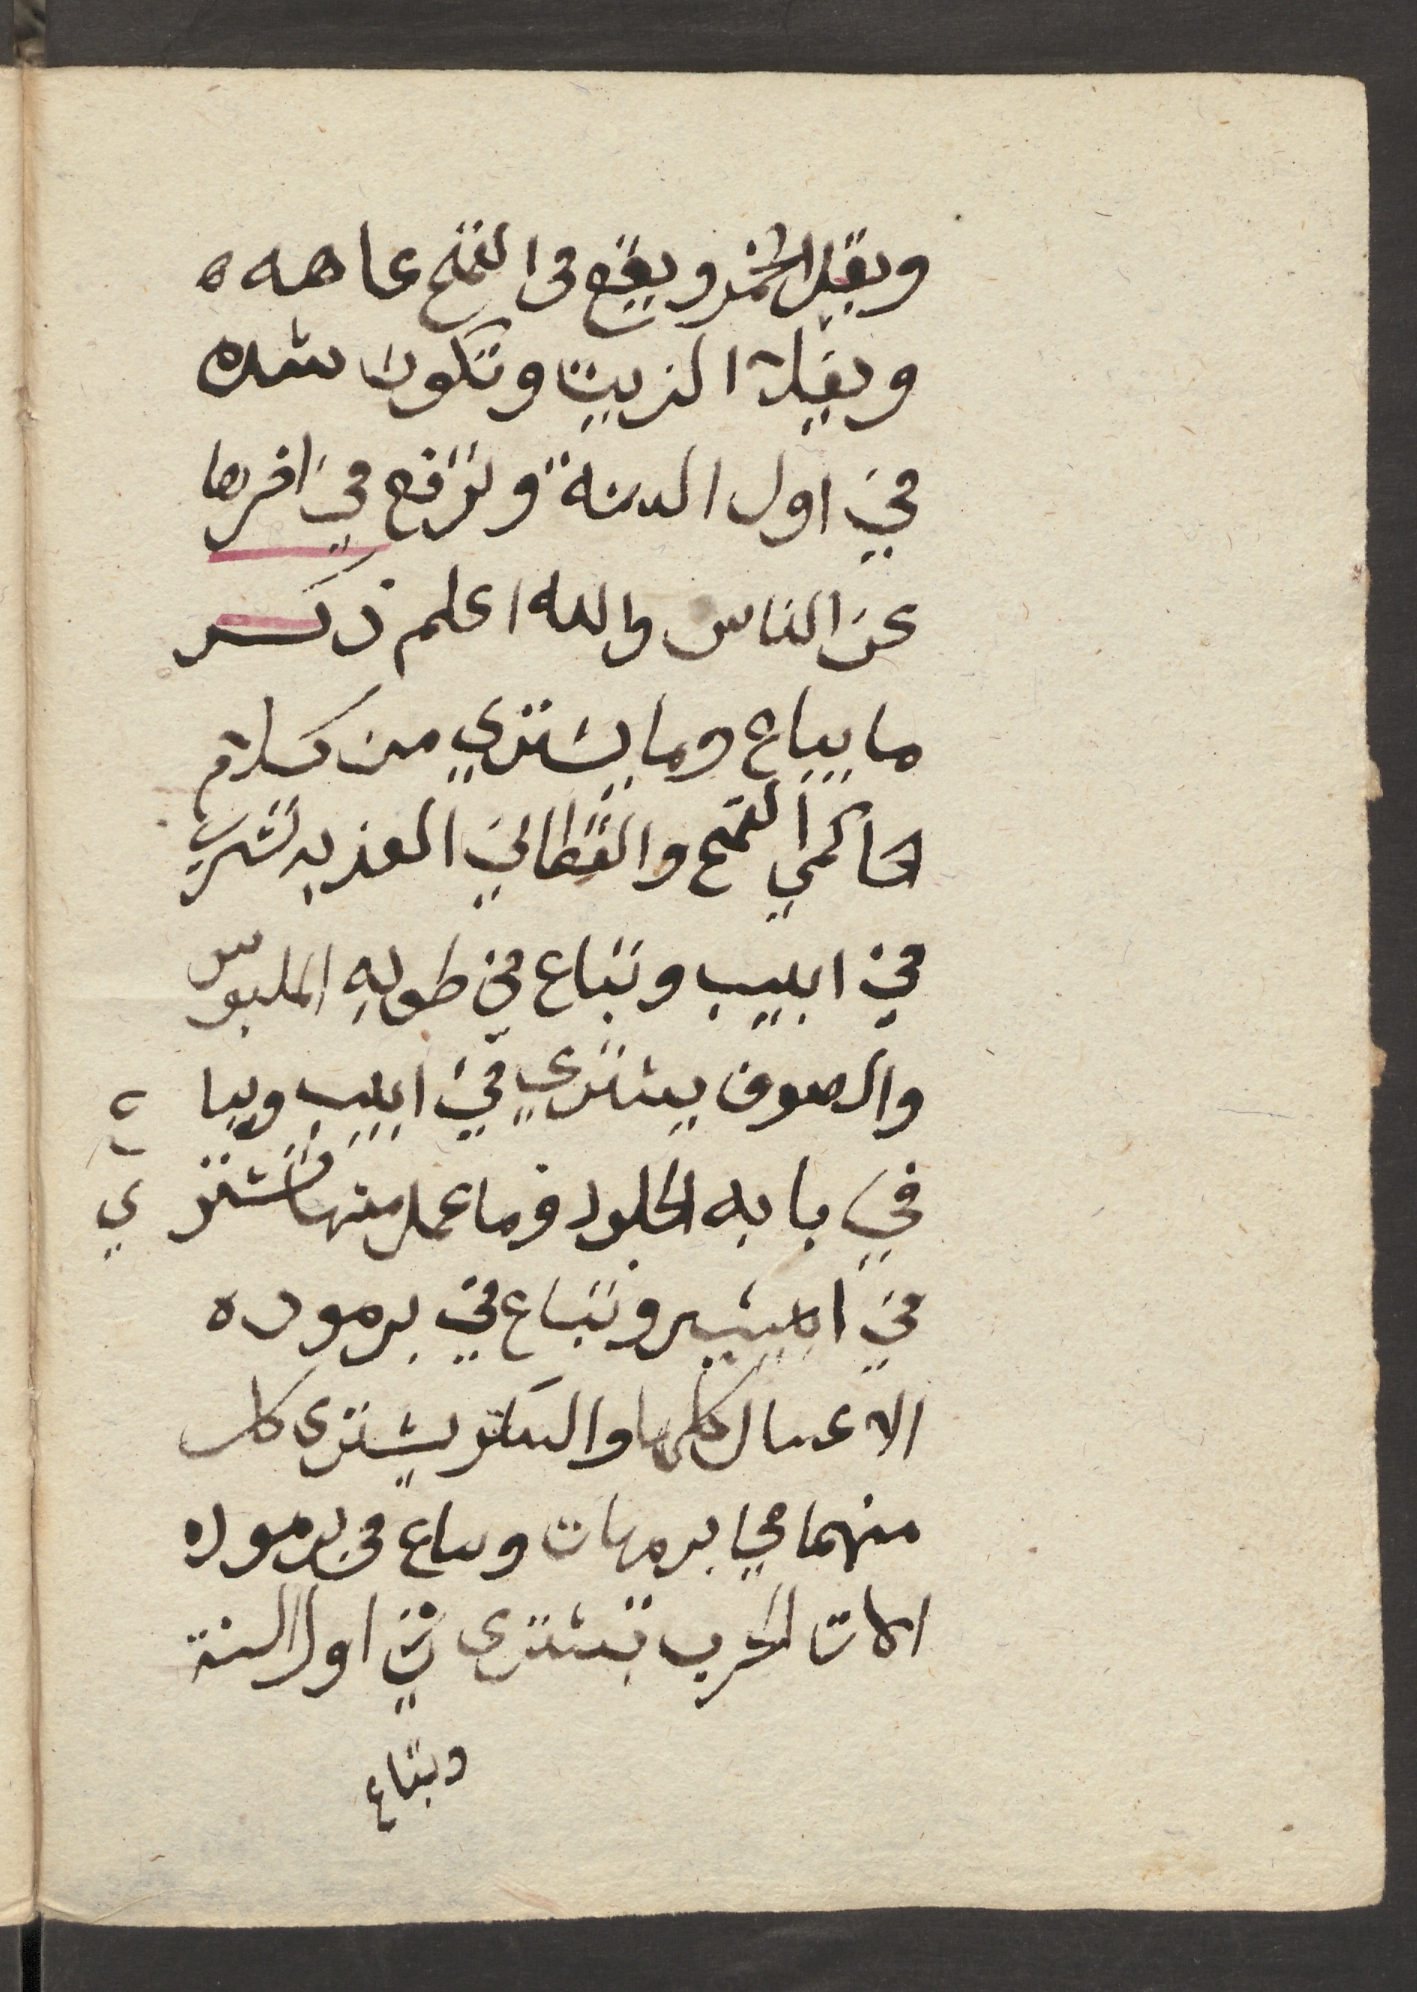 ويقل الخمر ويقع فى القمح عاهه
ويقل الزيت وتكون شده
في اول السنة وترتفع في اخرها
عن الناس والله اعلم ذكر
ما يباع وما يشتري من كلام
القمح والقطاني تشتري
في ابيب وتباع في طوبه الملبوس
والصوف يشتري في ابيب ويباع
في بابه الجلود وما عمل منها تشتري
في امشير وتباع في برموده
كلها يشترى كل
منهما في برمهات ويباع فى برموده
الات الحرب تشترى في اول السنة
وتباع